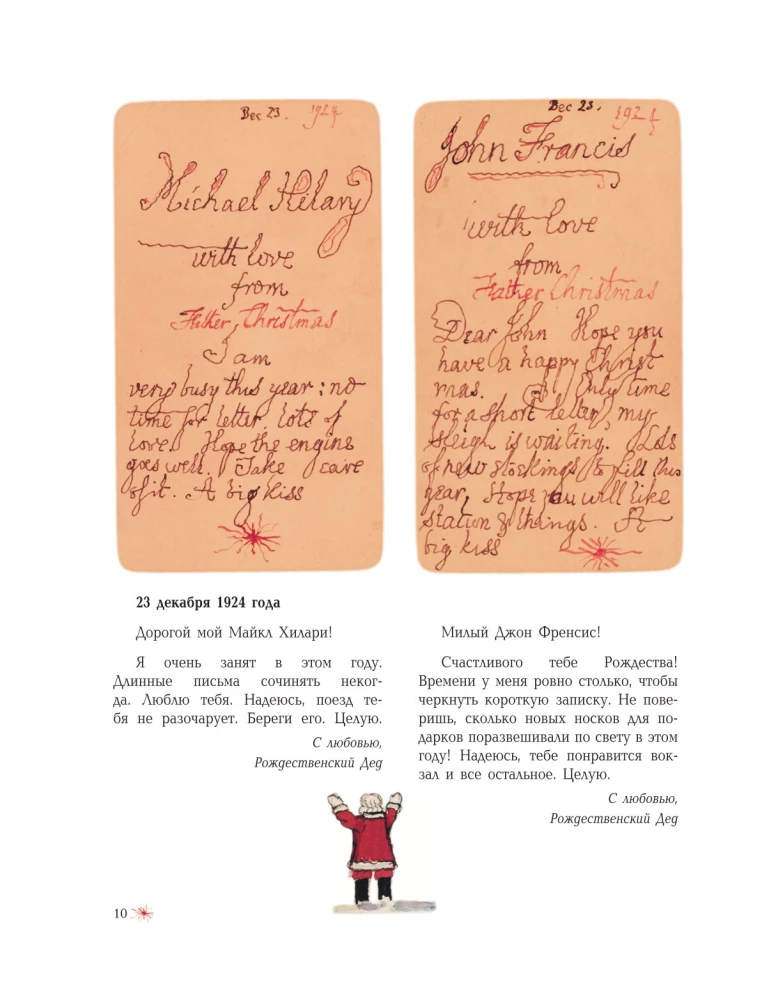 Dec 23. 1924
Michael Hilary
with love
from
Father Christmas
I am
very busy this year : no
time for letter. Lots of
love. Hope the engine
goes well. Take care
of it. A big kiss
Dec 23. 1924
John Francis
with love
from
Father Christmas
Dear John Hope you
have a happy Christ
mas. Only time
for a short letter, my
sleigh is waiting. Lots
of new stockings to fill this
year, Hope you will like
station & things. A
big kiss
23 декабря 1924 года
Дорогой мой Майкл Хилари!
Я очень занят в этом году.
Длинные письма сочинять неког-
да. Люблю тебя. Надеюсь, поезд те-
бя не разочарует. Береги его. Целую.
С любовью,
Рождественский Дед
Милый Джон Френсис!
Счастливого тебе Рождества!
Времени у меня ровно столько, чтобы
черкнуть короткую записку. Не пове-
ришь, сколько новых носков для по-
дарков поразвешивали по свету в этом
году! Надеюсь, тебе понравится вок-
зал и все остальное. Целую.
С любовью,
Рождественский Дед
10